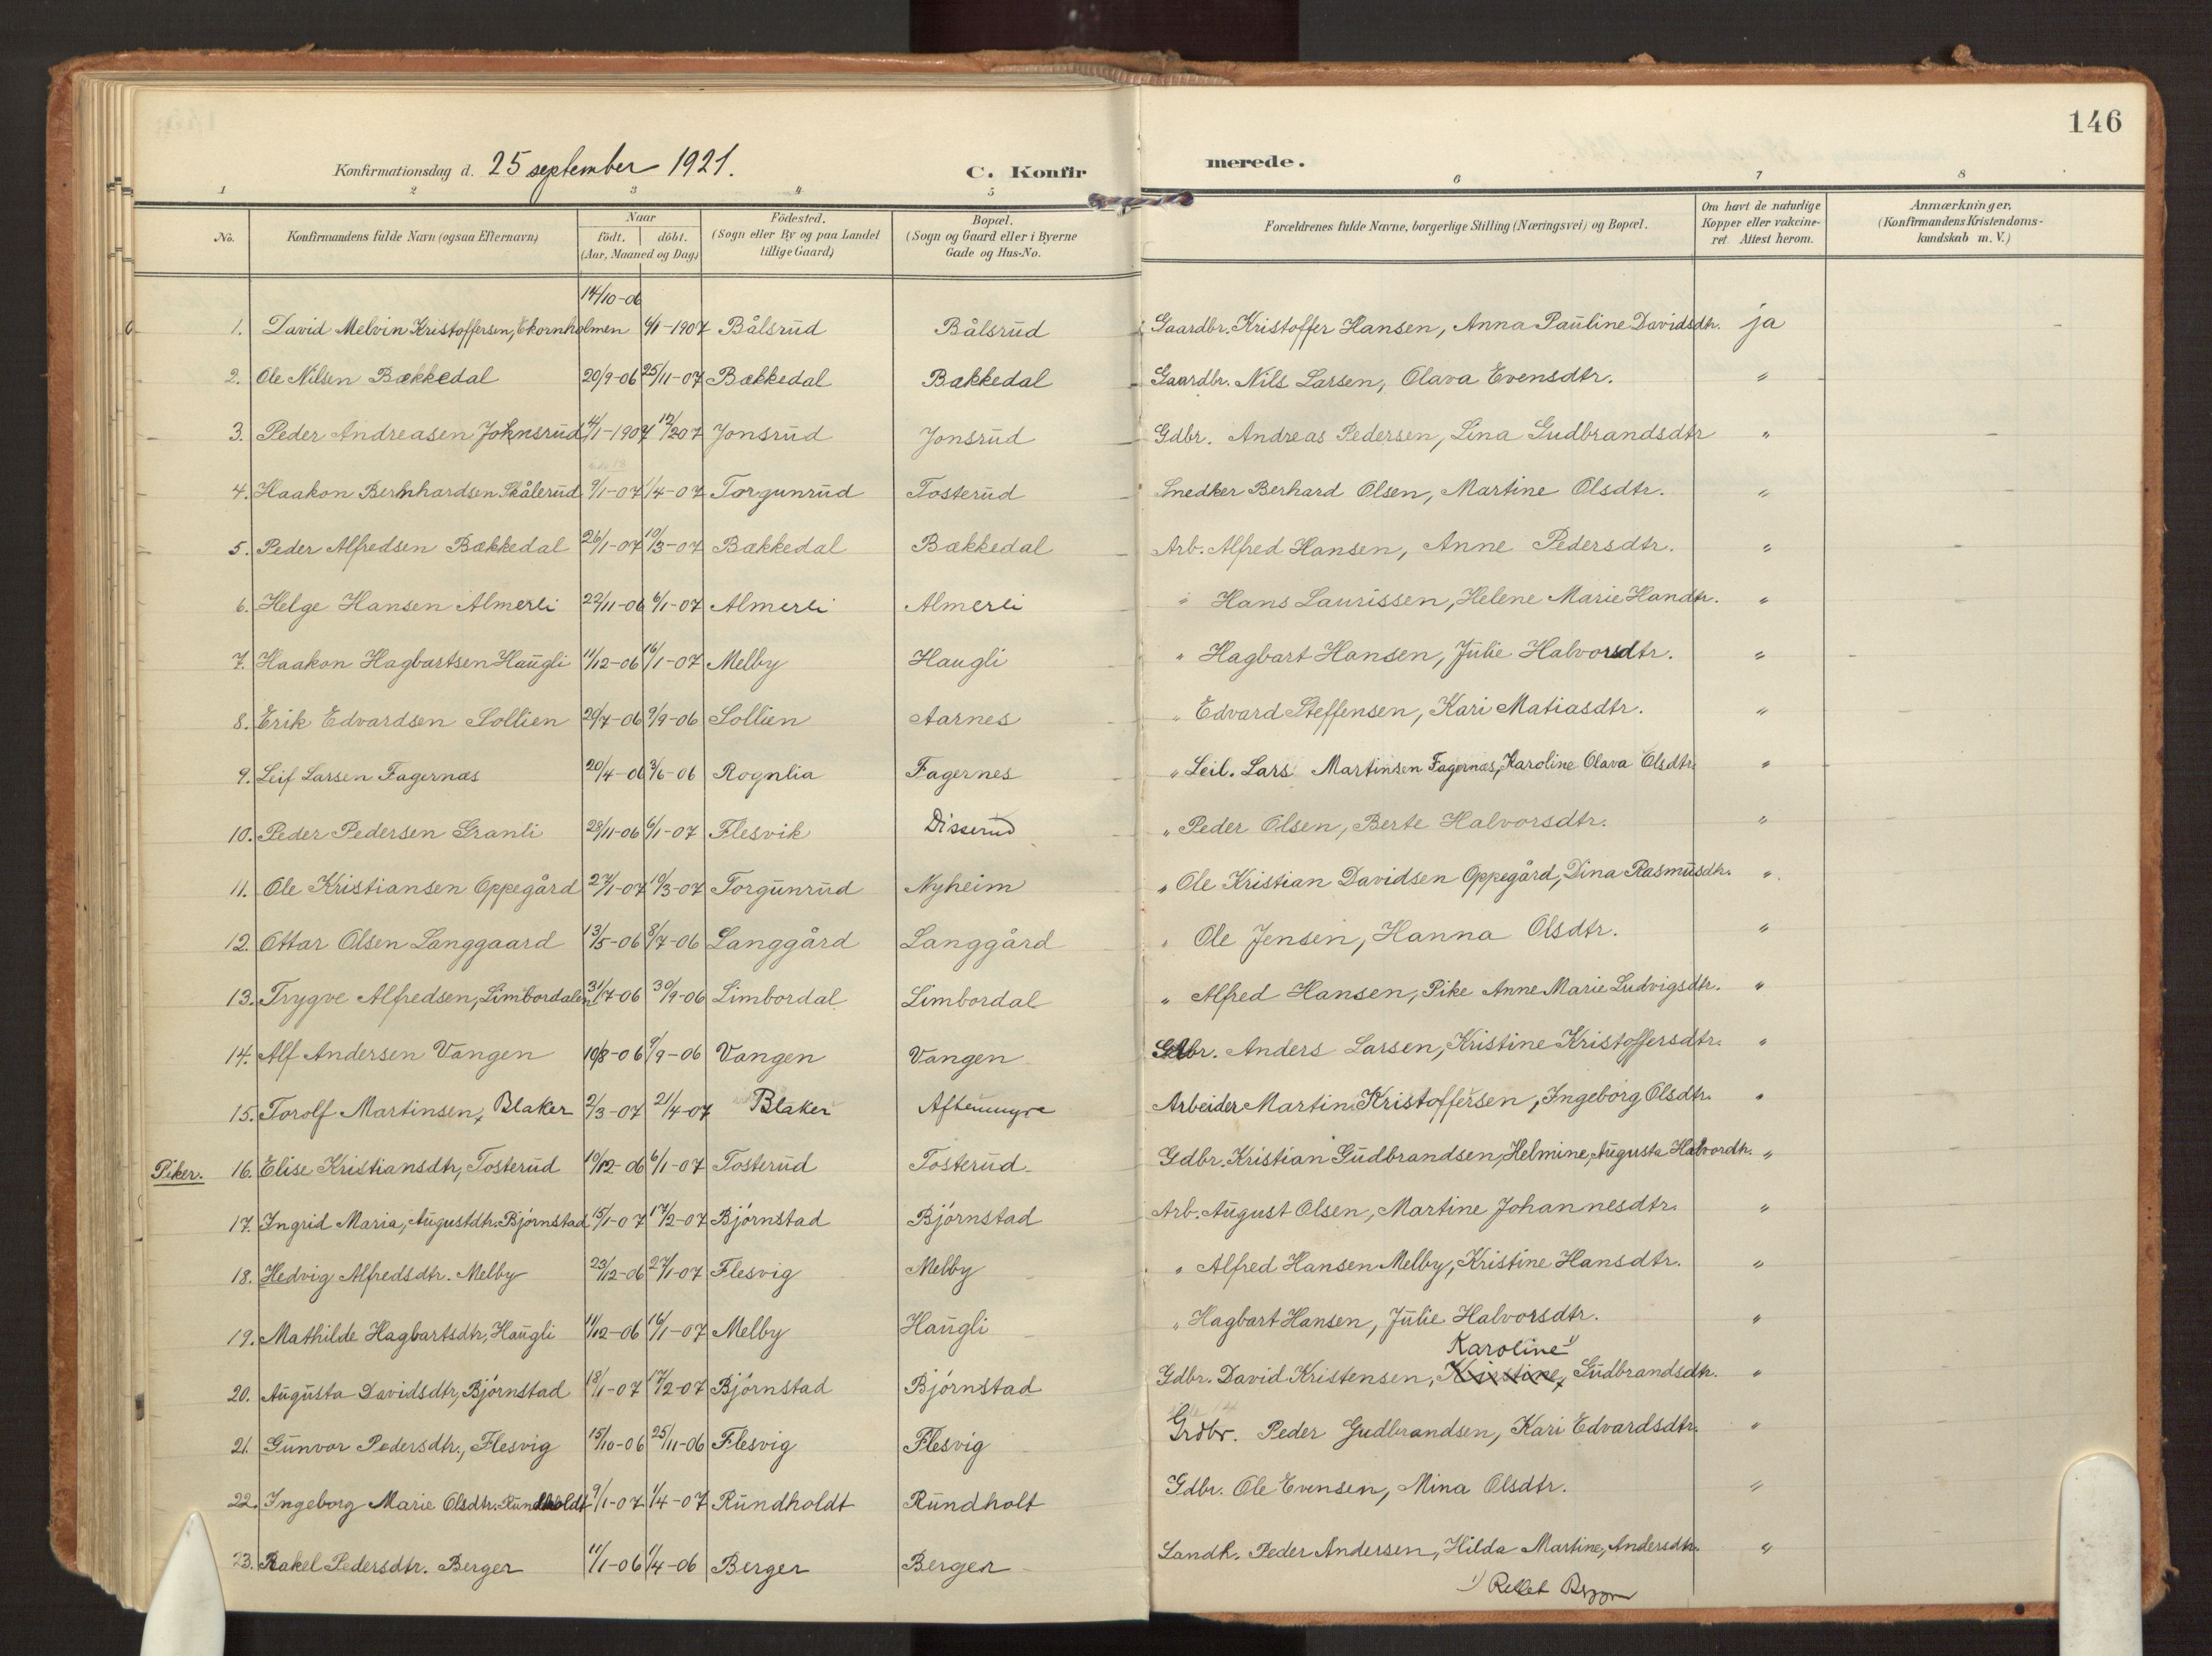 146
Konfirmationsdag d. 25 september 1921.
C. Konfirmerede.
1 2 3 4 5 6 7 8
No. Konfirmandens fulde Navn (ogsaa Efternavn) Naar födt. döbt. (Aar, Maaned og Dag) Födested. (Sogn eller By og paa Landet tillige Gaard) Bopæl. (Sogn og Gaard eller i Byerne Gade og Hus-No. Forældrenes fulde Navne, borgerlige Stilling (Næringsvei) og Bopæl. Om havt de naturlige Kopper eller vakcineret Attest herom. Anmærkninger. (Konfirmandens Kristendomskundskab m. V.)
1. David Melvin Kristoffersen, Ekornholmen 14/10-06 6/1-1907 Bålsrud Bålsrud Gaardbr. Kristoffer Hansen, Anna Pauline Davidsdtr. ja
2. Ole Nilsen Bækkedal 20/9-06 25/11-07 Bækkedal Bækkedal Gaardbr. Nils Larsen, Olava Evensdtr. "
3. Peder Andreasen Johnsrud 4/1-1907 17/207 Jonsrud Jonsrud Gdbr. Andreas Pedersen, Lina Gudbrandsdtr "
4. Haakon Bernhardsen Skålerud 9/1-07 1/4-07 Torgunrud Tosterud Snedker Berhard Olsen, Martine Olsdtr. "
5. Peder Alfredsen Bækkedal 26/1-07 10/3-07 Bækkedal Bækkedal Arb. Alfred Hansen, Anne Pedersdtr. "
6. Helge Hansen Almerli 22/11-06 6/1-07 Almerli Almerli " Hans Laurissen, Helene Marie Handtr. "
7. Haakon Hagbartsen Haugli 11/12-06 16/1-07 Melby Haugli " Hagbart Hansen, Julie Halvorsdtr. "
8. Erik Edvardsen Sollien 29/7-06 9/9-06 Sollien Aarnes " Edvard Steffensen, Kari Matiasdtr. "
9. Leif Larsen Fagernæs 20/4-06 3/6-06 Rognlia Fagernes " Leil. Lars Martinsen Fagernæs, Karoline Olava Olsdtr. "
10. Peder Pedersen Granli 28/11-06 6/1-07 Flesvik Disserud " Peder Olsen, Berte Halvorsdtr. "
11. Ole Kristiansen Oppegård 27/1-07 10/3-07 Torgunrud Nyheim " Ole Kristian Davidsen Oppegård, Dina Rasmusdtr. "
12. Ottar Olsen Langgaard 13/5-06 8/7-06 Langgård Langgård " Ole Jensen, Hanna Olsdtr. "
13. Trygve Alfredsen, Limbordalen 31/7-06 30/9-06 Limbordal Limbordal " Alfred Hansen, Pike Anne Marie Ludvigsdtr. "
14. Alf Andersen Vangen 10/8-06 9/9-06 Vangen Vangen Gdbr. Anders Larsen, Kristine Kristoffersdtr. "
15. Torolf Martinsen, Blaker 2/3-07 21/4-07 Blaker Aftenmyre Arbeider Martin Kristoffersen, Ingeborg Olsdtr. "
Piker. 16. Elise Kristiansdtr, Tosterud 10/12-06 6/1-07 Tosterud Tosterud. Gdbr. Kristian Gudbrandsen, Helmine, Augusta Halvordtr. "
17. Ingrid Maria, Augustdtr. Bjórnstad 15/1-07 17/2-07 Bjórnstad Bjórnstad Arb. August Olsen, Martine Johannesdtr. "
18. Hedvig Alfredsdtr. Melby 23/12-06 27/1-07 Flesvig Melby " Alfred Hansen Melby, Kristine Hansdtr. "
19. Mathilde Hagbartsdtr, Haugli 11/12-06 16/1-07 Melby Haugli " Hagbart Hansen, Julie Halvorsdtr. "
Karoline 1)
20. Augusta Davidsdtr, Bjórnstad 18/1-07 17/2-07 Bjórnstad Bjórnstad Gdbr. David Kristensen, Kristine, Gudbrandsdtr. "
21. Gunvor Pedersdtr., Flesvig 15/10-06 25/11-06 Flesvig Flesvig Grdbr. Peder Gudbrandsen, Kari Edvardsdtr. "
22. Ingeborg Marie Olsdtr. Rundholdt 9/1-07 1/4-07 Rundholdt Rundholt Gdbr. Ole Evensen, Mina Olsdtr. "
23. Rakel Pedersdtr. Berger 11/1-06 1/4-06 Berger Berger Landh. Peder Andersen, Hilda Martine, Andersdtr. "
1) Rettet